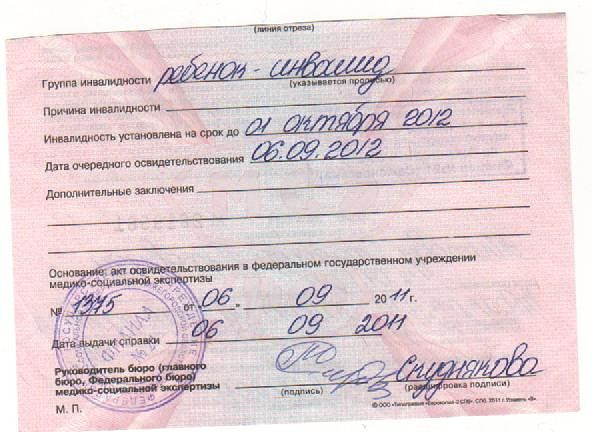 (линия отреза)
Группа инвалидности ребенок-инвалид
(указывается прописью)
Причина инвалидности
Инвалидность установлена на срок до 01 октября 2012
Дата очередного освидетельствования 06.09.2012
Дополнительные заключения
Основание: акт освидетельствования в федеральном государственном учреждении
медико-социальной экспертизы
№ 1375 от "06" 09 2011 г.
Дата выдачи справки 06 09 2011
Руководитель бюро (главного
бюро, Федерального бюро)
медико-социальной экспертизы Скуднякова
(подпись) (расшифровка подписи)
М. П.